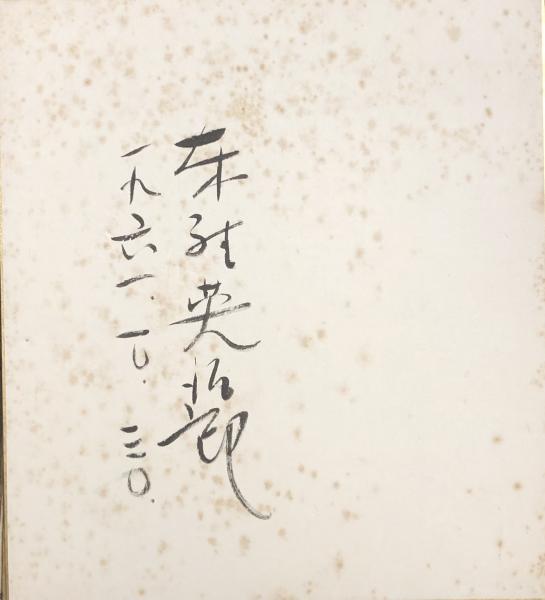 東野英治郎
一九六一.一〇.三〇.